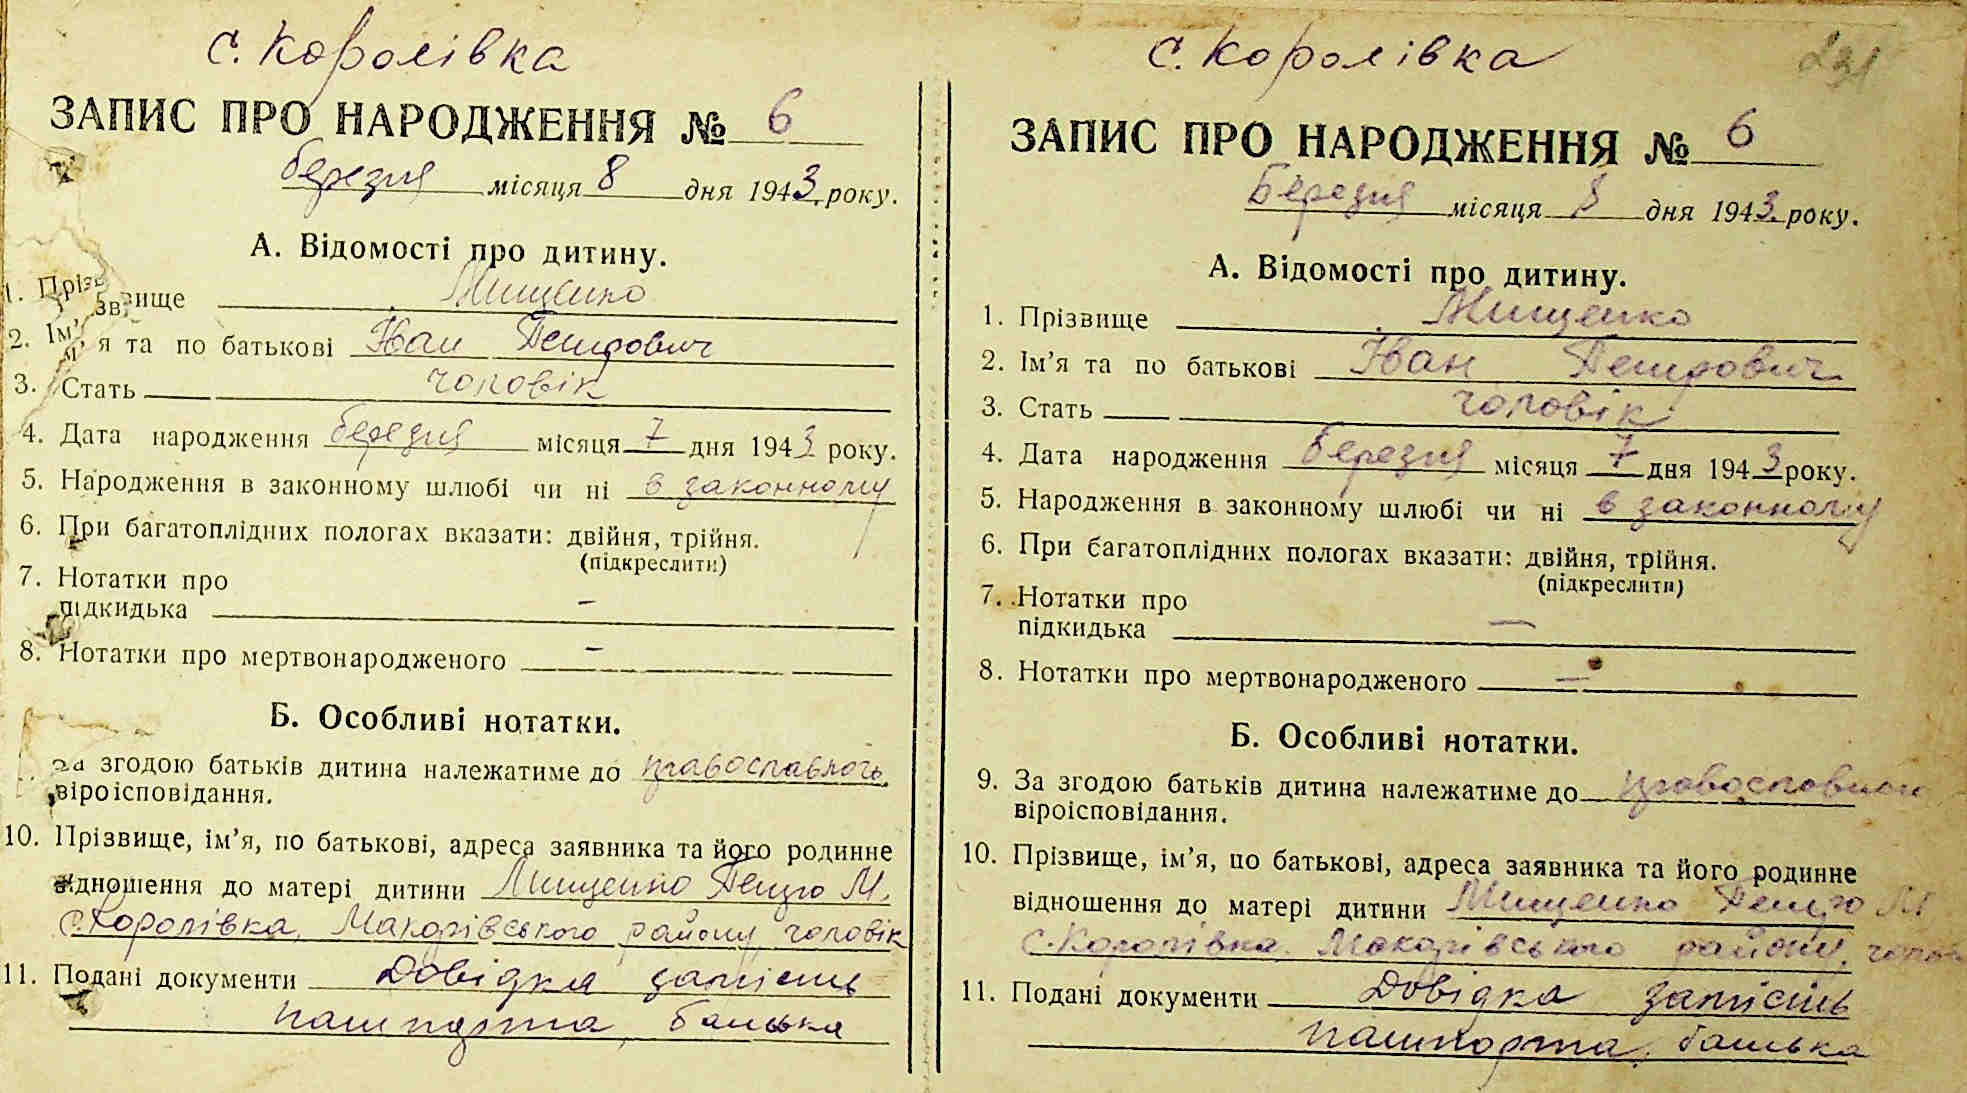 с. Королівка
ЗАПИС ПРО НАРОДЖЕННЯ № 6
березня місяця 8 дня 1943 року.
А. Відомості про дитину.
1. Прізвище Мищенко
2. Ім'я та по батькові Іван Петрович
3. Стать чоловік
4. Дата народження березня місяця 7 дня 1943 року.
5. Народження в законному шлюбі чи ні в законному
6. При багатоплідних пологах вказати: двійня, трійня.
(підкреслити)
7. Нотатки про
підкидька —
8. Нотатки про мертвонародженого —
Б. Особливі нотатки.
За згодою батьків дитина належатиме до
віроісповідання.
10. Прізвище, ім'я, по батькові, адреса заявника та його родинне
відношення до матері дитини Мищенко Петро М.
с. Королівка, Макарівського району, чоловік
11. Подані документи Довідка замісць
пашпорта, батька
с. Королівка
231
ЗАПИС ПРО НАРОДЖЕННЯ № 6
Березня місяця 8 дня 1943 року.
А. Відомості про дитину.
1. Прізвище Мищенко
2. Ім'я та по батькові Іван Петрович
3. Стать чоловік
4. Дата народження березня місяця 7 дня 1943 року.
5. Народження в законному шлюбі чи ні в законному
6. При багатоплідних пологах вказати: двійня, трійня.
(підкреслити)
7. Нотатки про
підкидька —
8. Нотатки про мертвонародженого —
Б. Особливі нотатки.
9. За згодою батьків дитина належатиме до православного
віроісповідання.
10. Прізвище, ім'я, по батькові, адреса заявника та його родинне
відношення до матері дитини Мищенко Петро М
с. Королівка, Макарівського району,
11. Подані документи Довідка замісць
пашпорта, батька